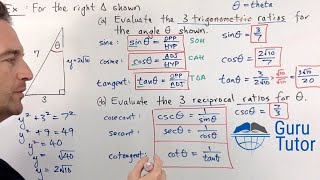 Ex: For the right Δ shown
θ = theta
(a) Evaluate the 3 trigonometric ratios for
the angle θ shown.
7
θ
3
y = 2√10
sine: sin θ = OPP/HYP SOH sin θ = 3/7
cosine: cos θ = ADJ/HYP CAH cos θ = 2√10/7
tangent: tan θ = OPP/ADJ TOA tan θ = 3/2√10 · √10/√10 = 3√10/20
y² + 3² = 7²
y² + 9 = 49
y² = 40
y = √40
y = 2√10
(b) Evaluate the 3 reciprocal ratios for θ.
cosecant: csc θ = 1/sin θ csc θ = 7/3
secant: sec θ = 1/cos θ
cotangent: cot θ = 1/tan θ
Guru
Tutor